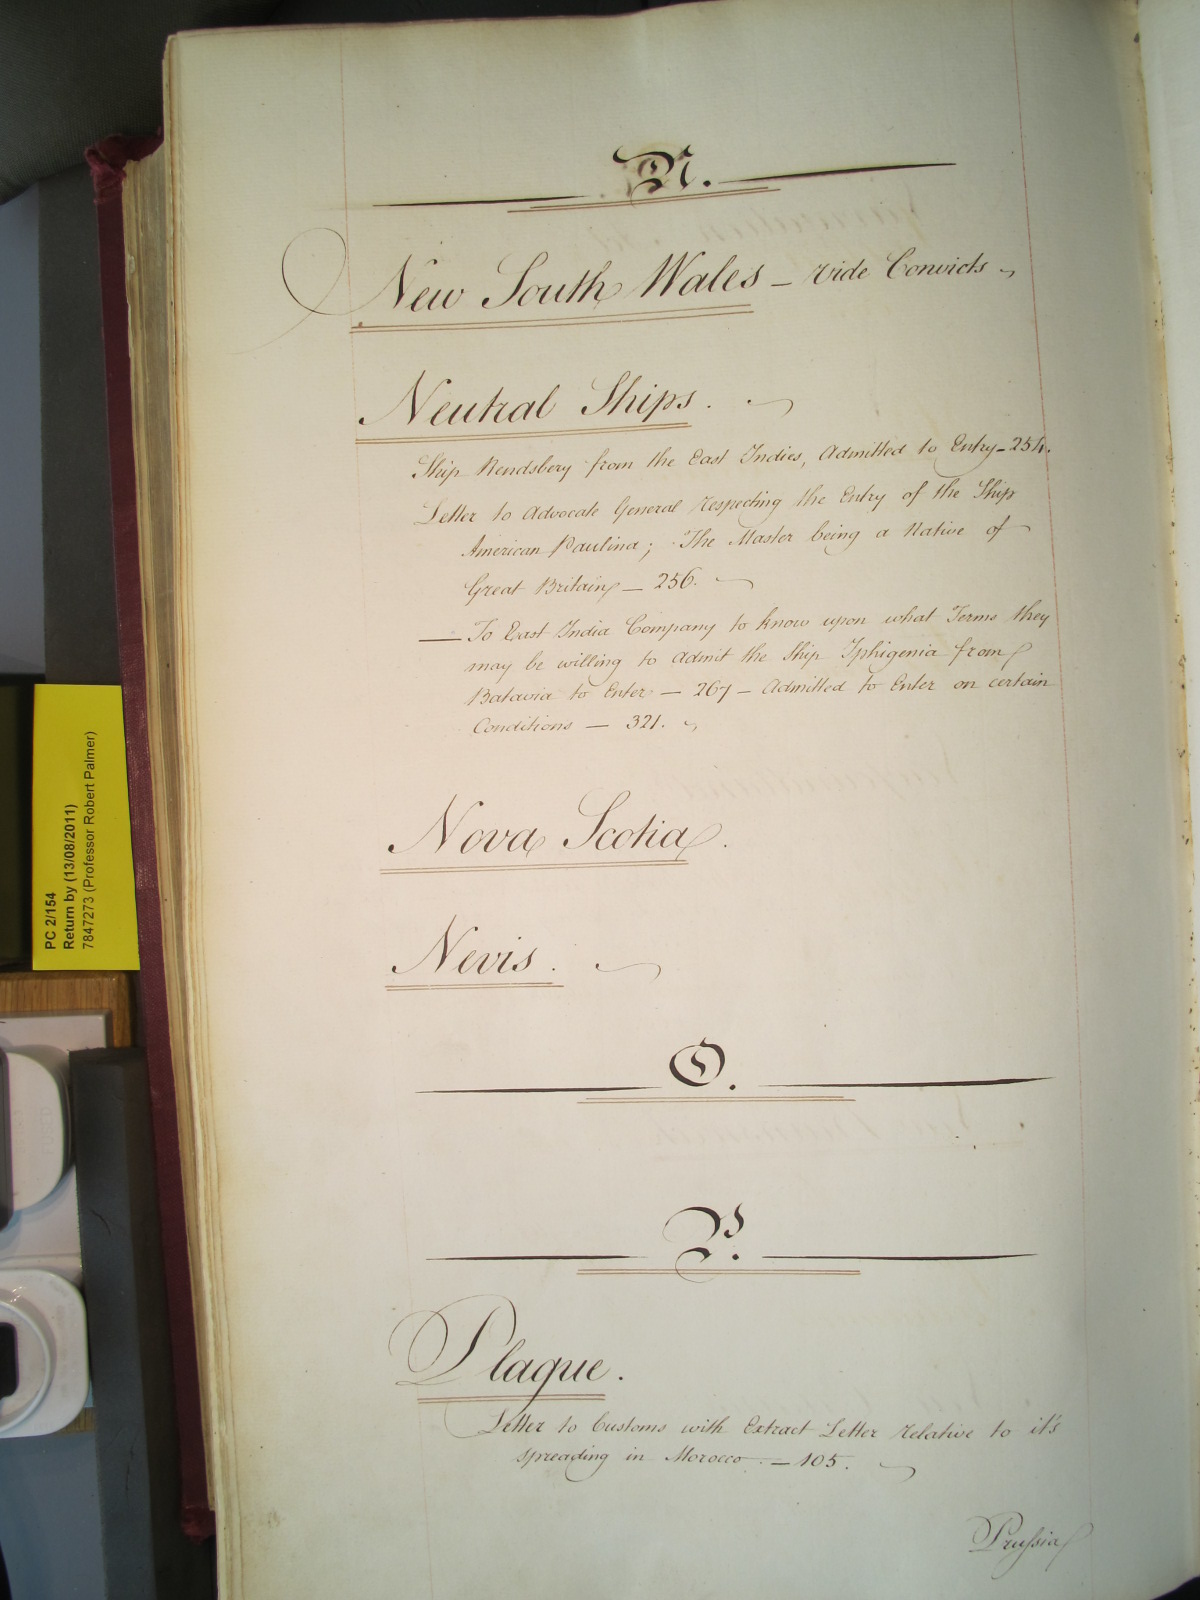 N.
New South Wales – vide Convicts
Neutral Ships.
Ship Rendsberg from the East Indies, Admitted to Entry – 254.
Letter to Advocate General respecting the Entry of the Ship
American Paulina; The Master being a Native of
Great Britain – 256.
— To East India Company to know upon what Terms they
may be willing to admit the Ship Iphigenia from
Batavia to Enter – 267 – Admitted to Enter on certain
Conditions – 321.
Nova Scotia.
Nevis.
O.
P.
Plague.
Letter to Customs with Extract Letter relative to it's
spreading in Morocco. – 105.
Prussia
PC 2/154
Return by (13/08/2011)
7847273 (Professor Robert Palmer)